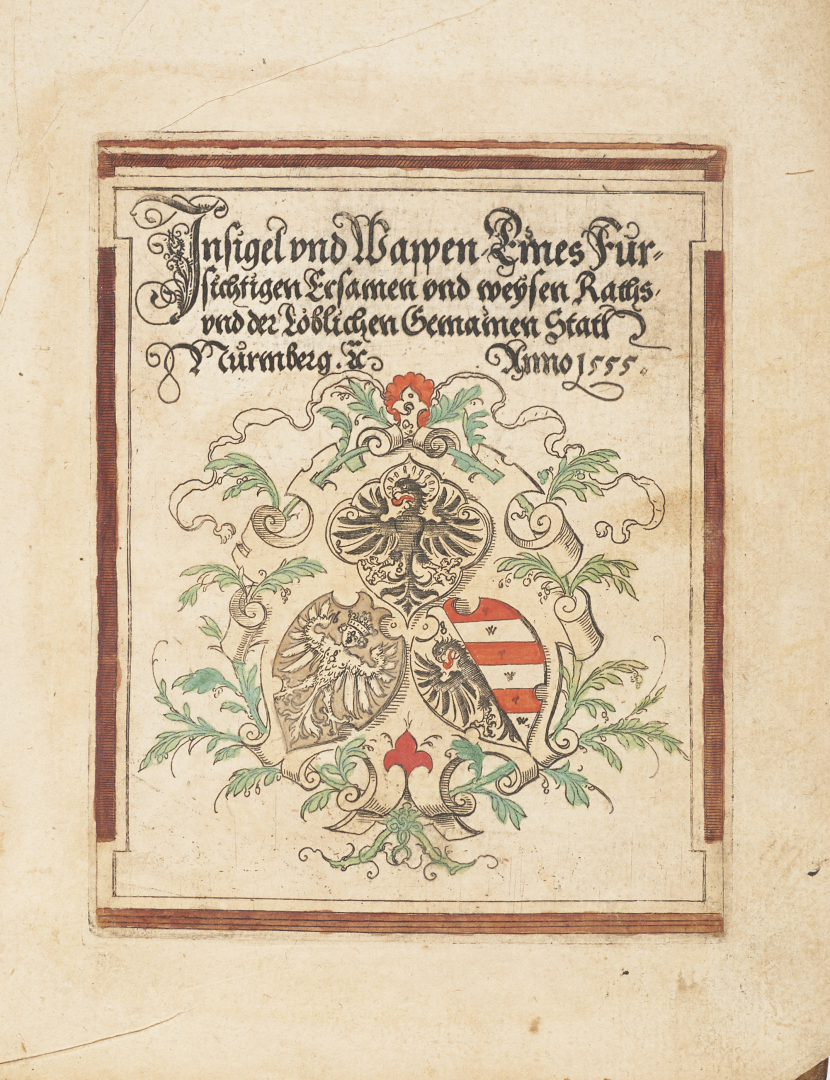 Insigel vnd Wappen Eines Fůr⸗
sichtigen Ersamen vnd weysen Raths,
vnd der Löblichen Gemainen Statt
Nůrmberg. ꝛc Anno 1555.